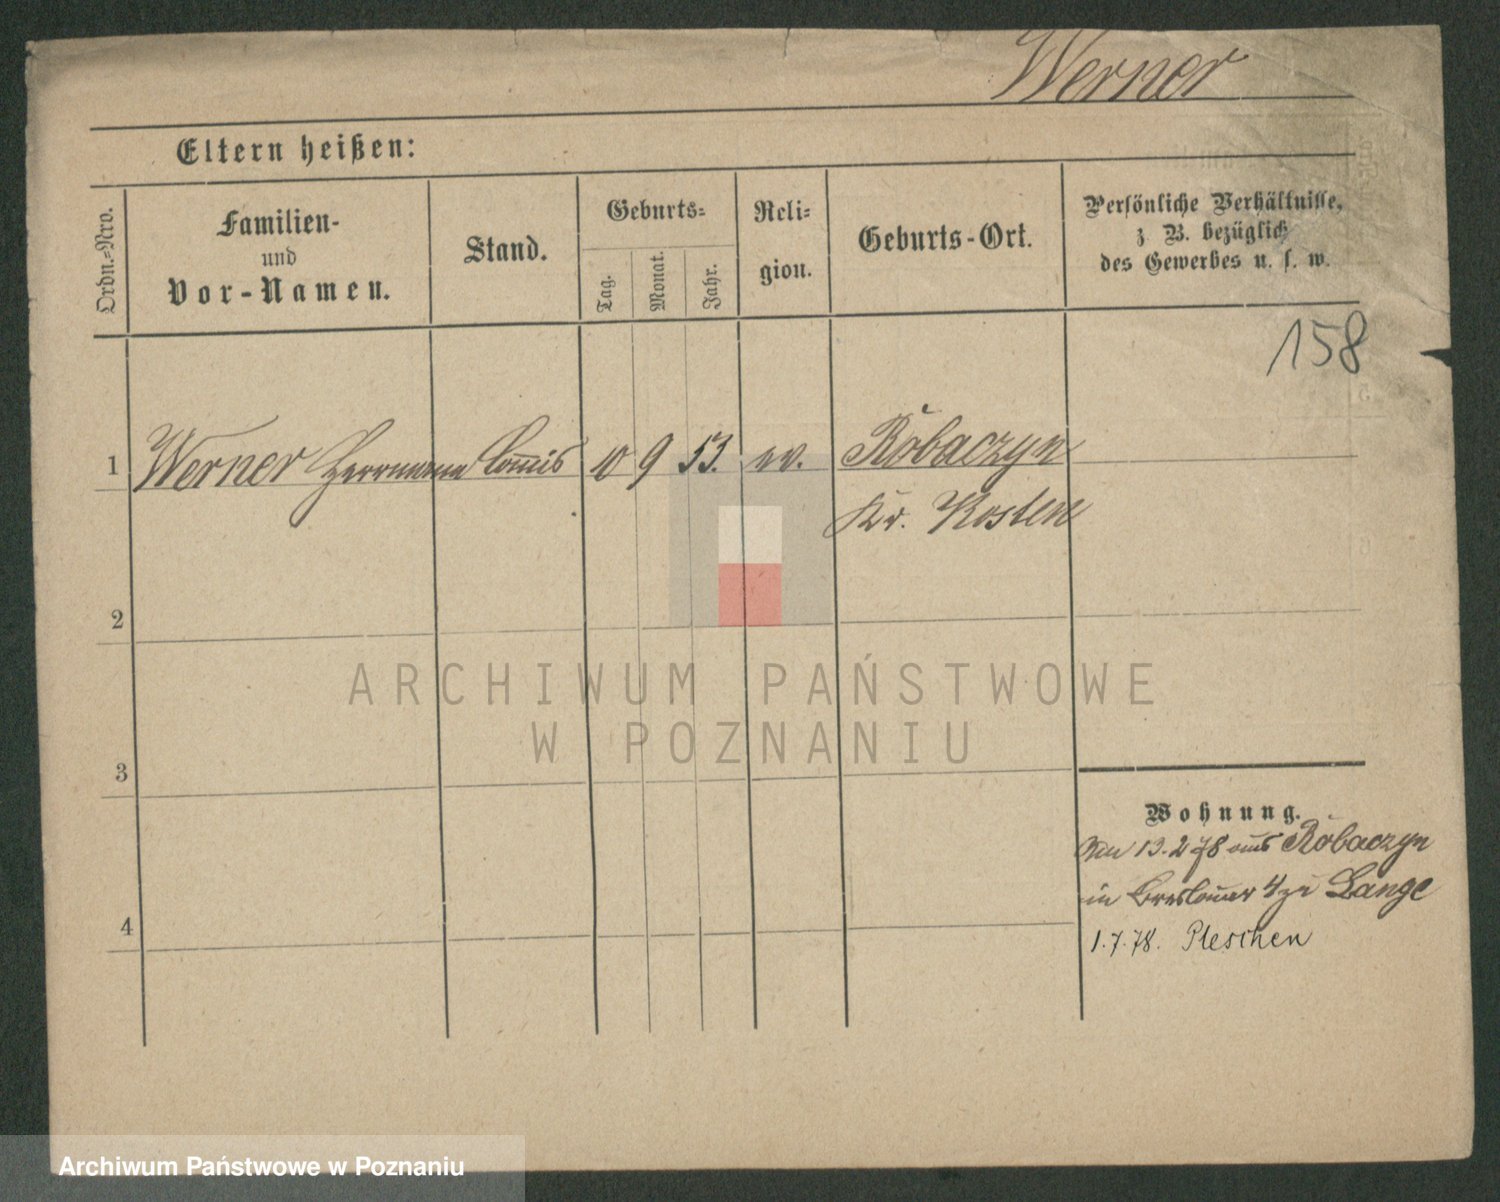 Werner
Eltern heißen:
Ordn.=Nro.
Familien-
und
Vor-Namen.
Stand.
Geburts=
Tag.
Monat.
Jahr.
Reli=
gion.
Geburts-Ort.
Persönliche Verhältnisse,
z. B. bezüglich
des Gewerbes u. s. w.
158
1 Werner Herrmann Com̄is 10 9 53. ev. Robaczyn
Kr. Kosten
2
3
4
Wohnung.
13.2.78 aus Robaczyn
in Breslauer 4 zu Lange
1.7.78. Pleschen
ARCHIWUM PAŃSTWOWE
W POZNANIU
Archiwum Państwowe w Poznaniu